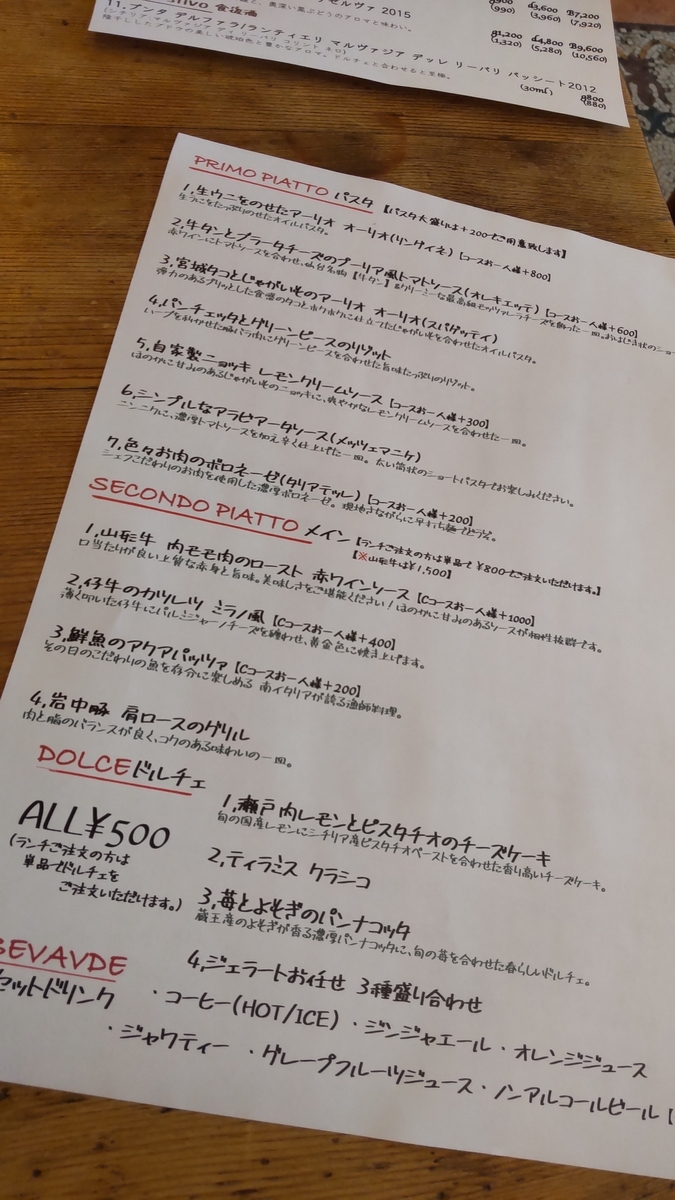 ゼルヴァ 2015
g900 d3,600 B7,200
(990) (3,960) (7,920)
食後酒
11.プンタ デルファラ/ランティエリ マルヴァジア デッレ リーパリ パッシート2012
g1,200 d4,800 B9,600
(1,320) (5,280) (10,560)
(30ml) g800
(880)
PRIMO PIATTO パスタ 【パスタ大盛りは+200でご用意致します】
1,生ウニをのせたアーリオ オーリオ(リングイネ)【コースお一人様+800】
生ウニをたっぷりのせたオイルパスタ。
2,牛タンとブラータチーズのプーリア風トマトソース(オレキエッテ)【コースお一人様+600】
赤ワインにトマトソースを合わせ、仙台名物【牛タン】&クリーミーな最高級モッツァレラチーズを飾った一皿。おはじき状のショー
3,宮城タコとじゃがいものアーリオ オーリオ(スパゲッティ)
弾力のあるプリッとした食感のタコとホクホクに仕立てたじゃがいもを合わせたオイルパスタ。
4,パンチェッタとグリーンピースのリゾット
ハーブを利かせた豚バラ肉にグリーンピースを合わせた旨味たっぷりのリゾット。
5,自家製ニョッキ レモンクリームソース【コースお一人様+300】
ほのかに甘みのあるじゃがいものニョッキに、爽やかなレモンクリームソースを合わせた一皿。
6,シンプルなアラビアータソース(メッツェマニケ)
ニンニクに、濃厚トマトソースを加え辛く仕上げた一皿。太い筒状のショートパスタでお楽しみください。
7,色々お肉のボロネーゼ(タリアテッレ)【コースお一人様+200】
シェフこだわりのお肉を使用した濃厚ボロネーゼ。現地さながらに平打ち麺でどうぞ。
SECONDO PIATTO メイン【ランチご注文の方は単品で¥800でご注文いただけます。】
【※山形牛は¥1,500】
1,山形牛 内モモ肉のロースト 赤ワインソース【Cコースお一人様+1000】
口当たりが良い上質な赤身と旨味。美味しさをご堪能ください!ほのかに甘みのあるソースが相性抜群です。
2,仔牛のカツレツ ミラノ風【Cコースお一人様+400】
薄く叩いた仔牛にパルミジャーノチーズを纏わせ、黄金色に焼き上げます。
3,鮮魚のアクアパッツァ【Cコースお一人様+200】
その日のこだわりの魚を存分に楽しめる 南イタリアが誇る漁師料理。
4,岩中豚 肩ロースのグリル
肉と脂のバランスが良く、コクのある味わいの一皿。
DOLCEドルチェ
ALL¥500
(ランチご注文の方は
単品でドルチェを
ご注文いただけます。)
1,瀬戸内レモンとピスタチオのチーズケーキ
旬の国産レモンにシチリア産ピスタチオペーストを合わせた香り高いチーズケーキ。
2,ティラミス クラシコ
3,苺とよもぎのパンナコッタ
蔵王産のよもぎが香る濃厚パンナコッタに、旬の苺を合わせた春らしいドルチェ。
4,ジェラートお任せ 3種盛り合わせ
BEVAVDE
セットドリンク ・コーヒー(HOT/ICE)・ジンジャエール・オレンジジュース
・ジャワティー ・グレープフルーツジュース・ノンアルコールビール